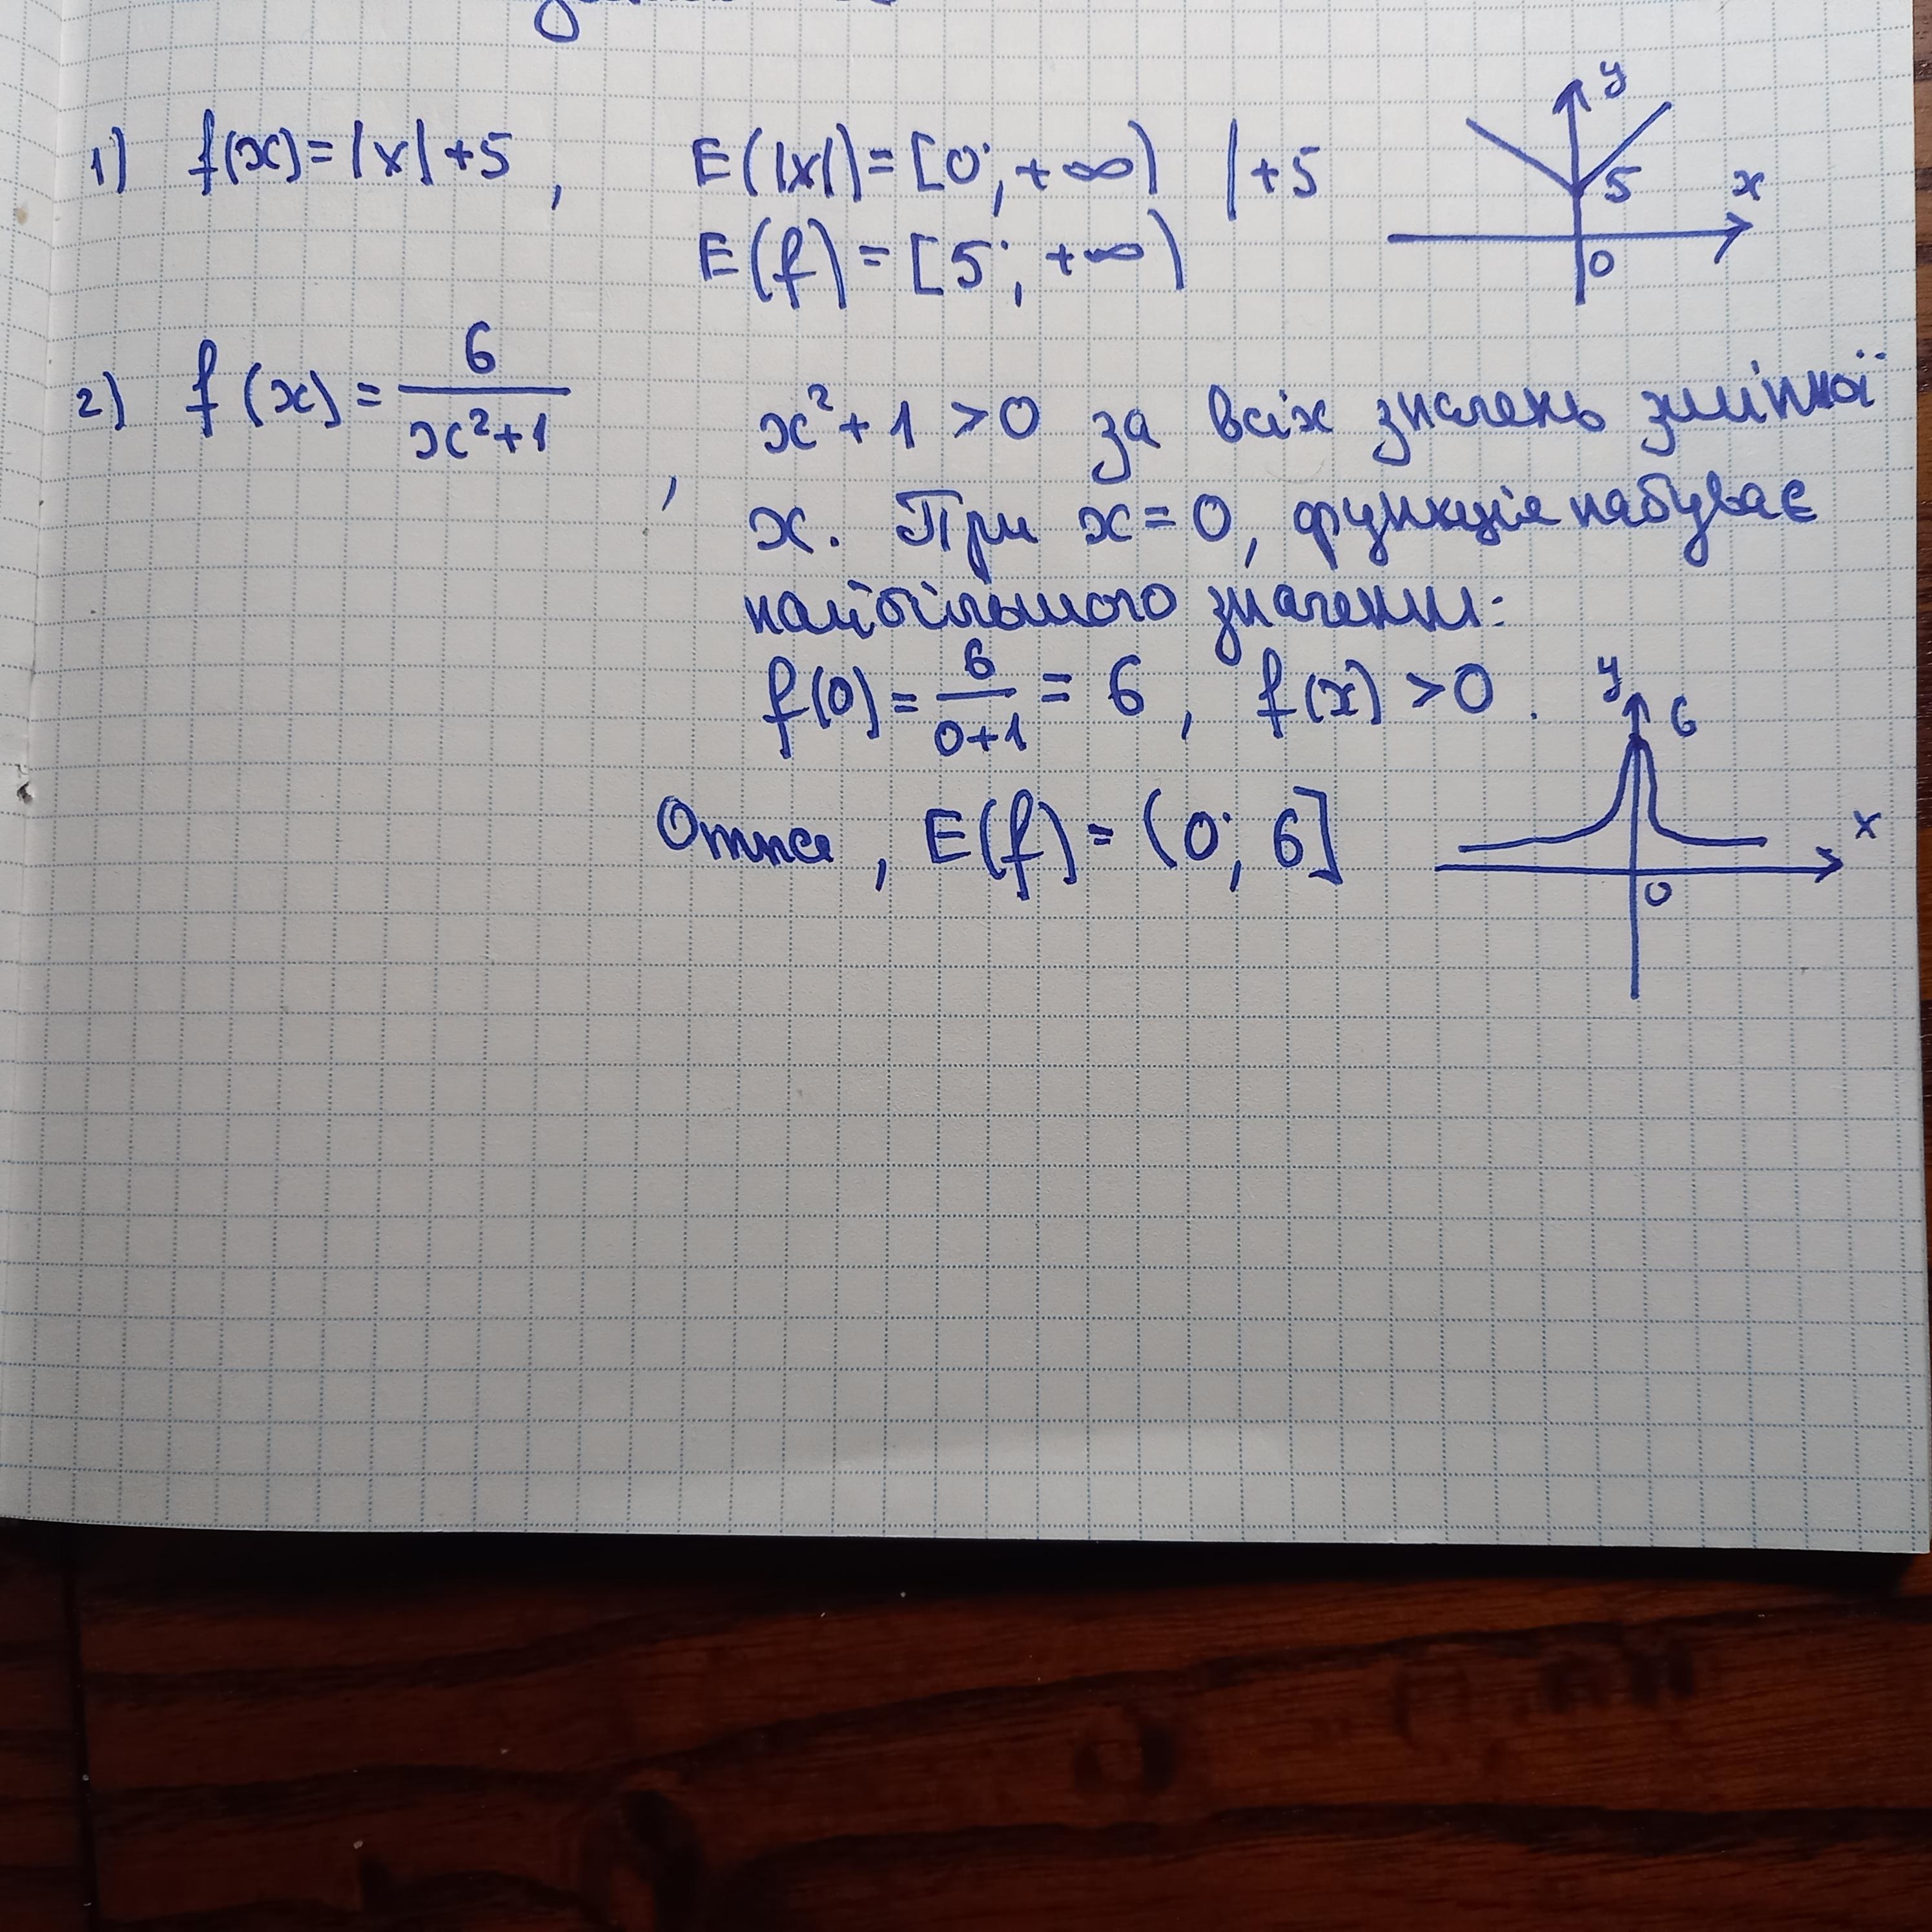 1) f(x)=|x|+5, E(|x|)=[0; +∞) |+5
E(f)=[5; +∞)
y
5
x
0
2) f(x)=6/(x²+1), x²+1>0 за всіх значень змінної
x. При x=0, функція набуває
найбільшого значення:
f(0)=6/(0+1)=6, f(x)>0.
y
6
Отже, E(f)=(0; 6]
x
0